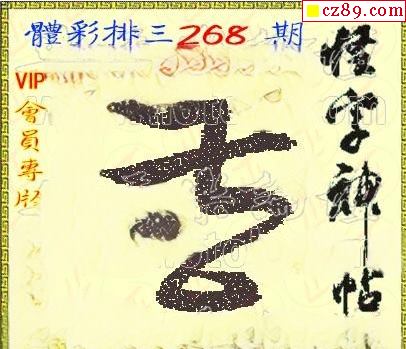 cz89.com
體彩排三268期
VIP
會員專版
怪字神帖